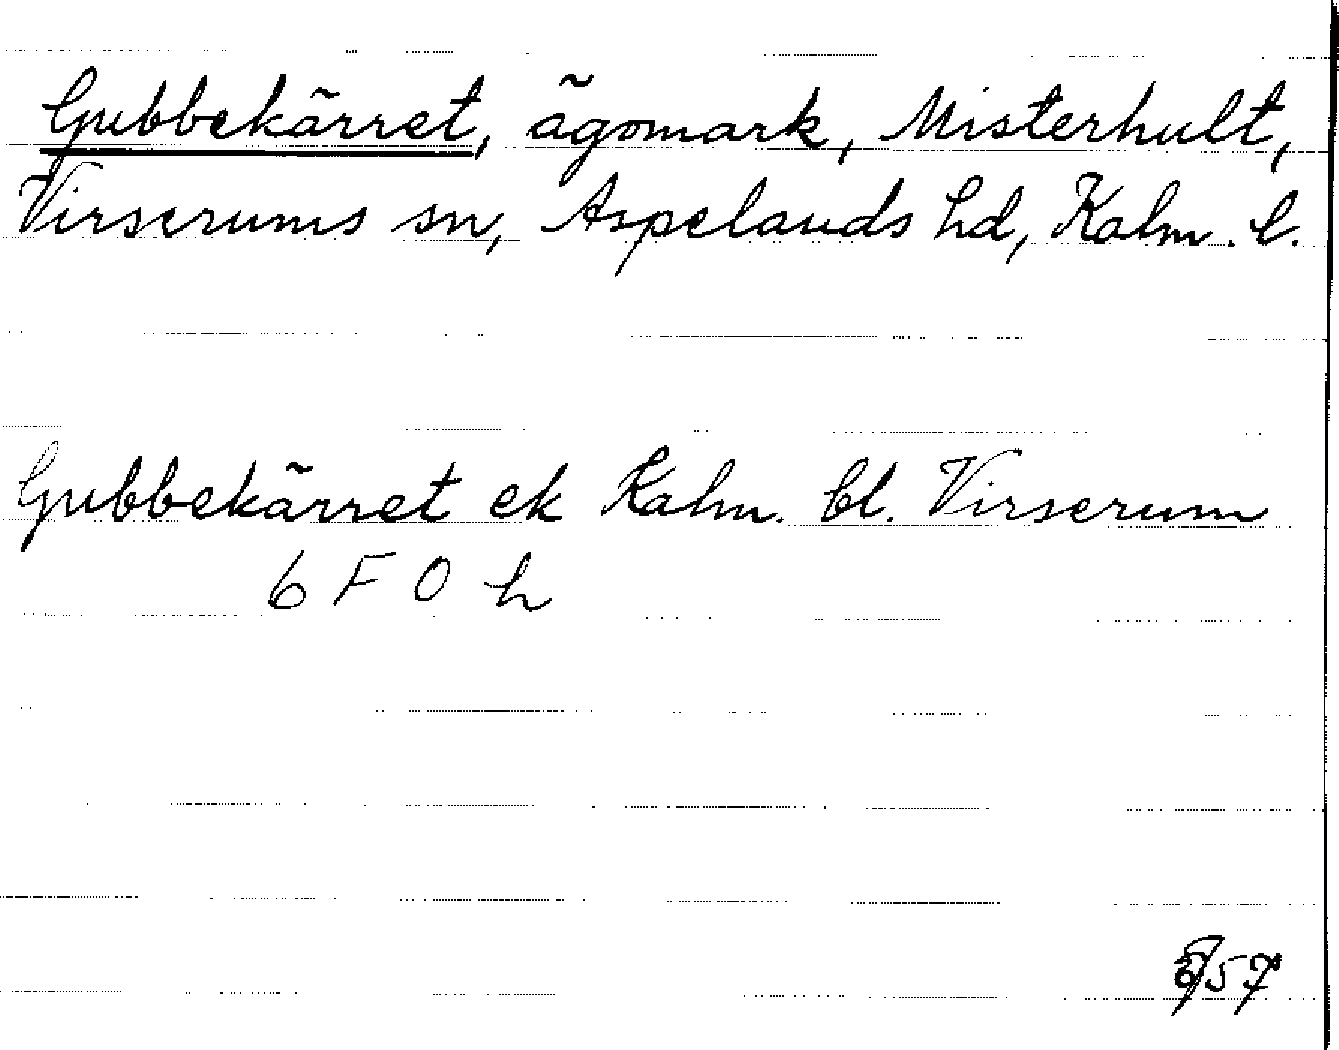 Gubbekärret, ägomark, Misterhult,
Virserums sn, Aspelands hd, Kalm. l.
Gubbekärret ek Kalm. bl. Virserum
6 F 0 h